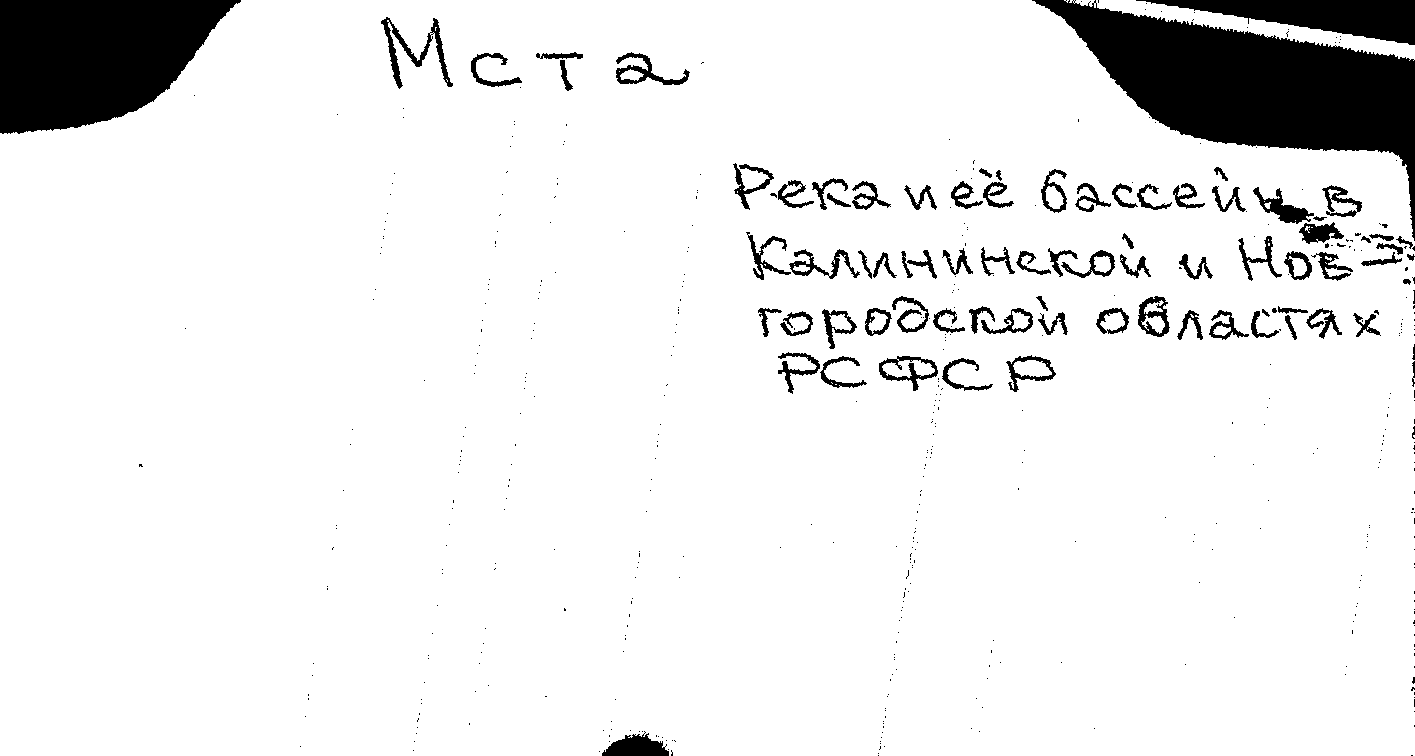 Мста
Река и её бассейн в
Калининской и Нов-
городской областях
РСФСР